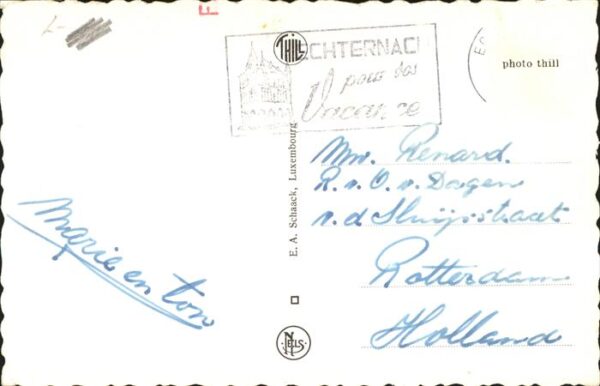 F
THILL
ECHTERNACH
pour vos
Vacances
photo thill
E. A. Schaack, Luxembourg
NELS
Marie en Ton
Mw. Renard.
R. v. O. v. Dagen
v. d Sluijsstraat
Rotterdam
Holland